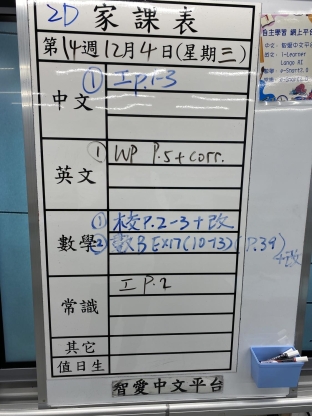 2D 家課表
第14週12月4日(星期三)
中文 ① 工 p.1-3
英文 ① WP P.5 + corr.
數學 ① 校 P.2-3 + 改
② 數B Ex17 (10-13) (P.39)
常識 工 P.2
其它
值日生
智愛中文平台
自主學習 網上平台
中文: 智愛中文平台
i-Learner